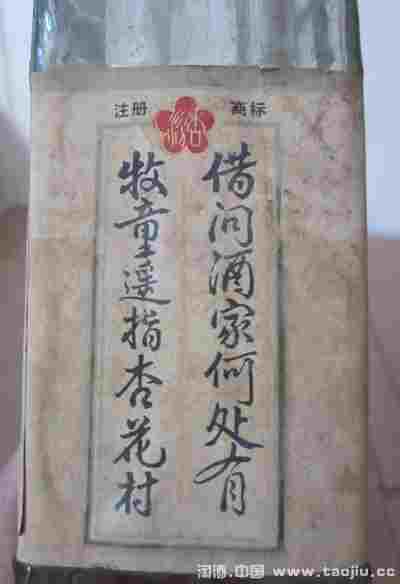 注册 商标
借问酒家何处有
牧童遥指杏花村
淘酒.中国 www.taojiu.cc